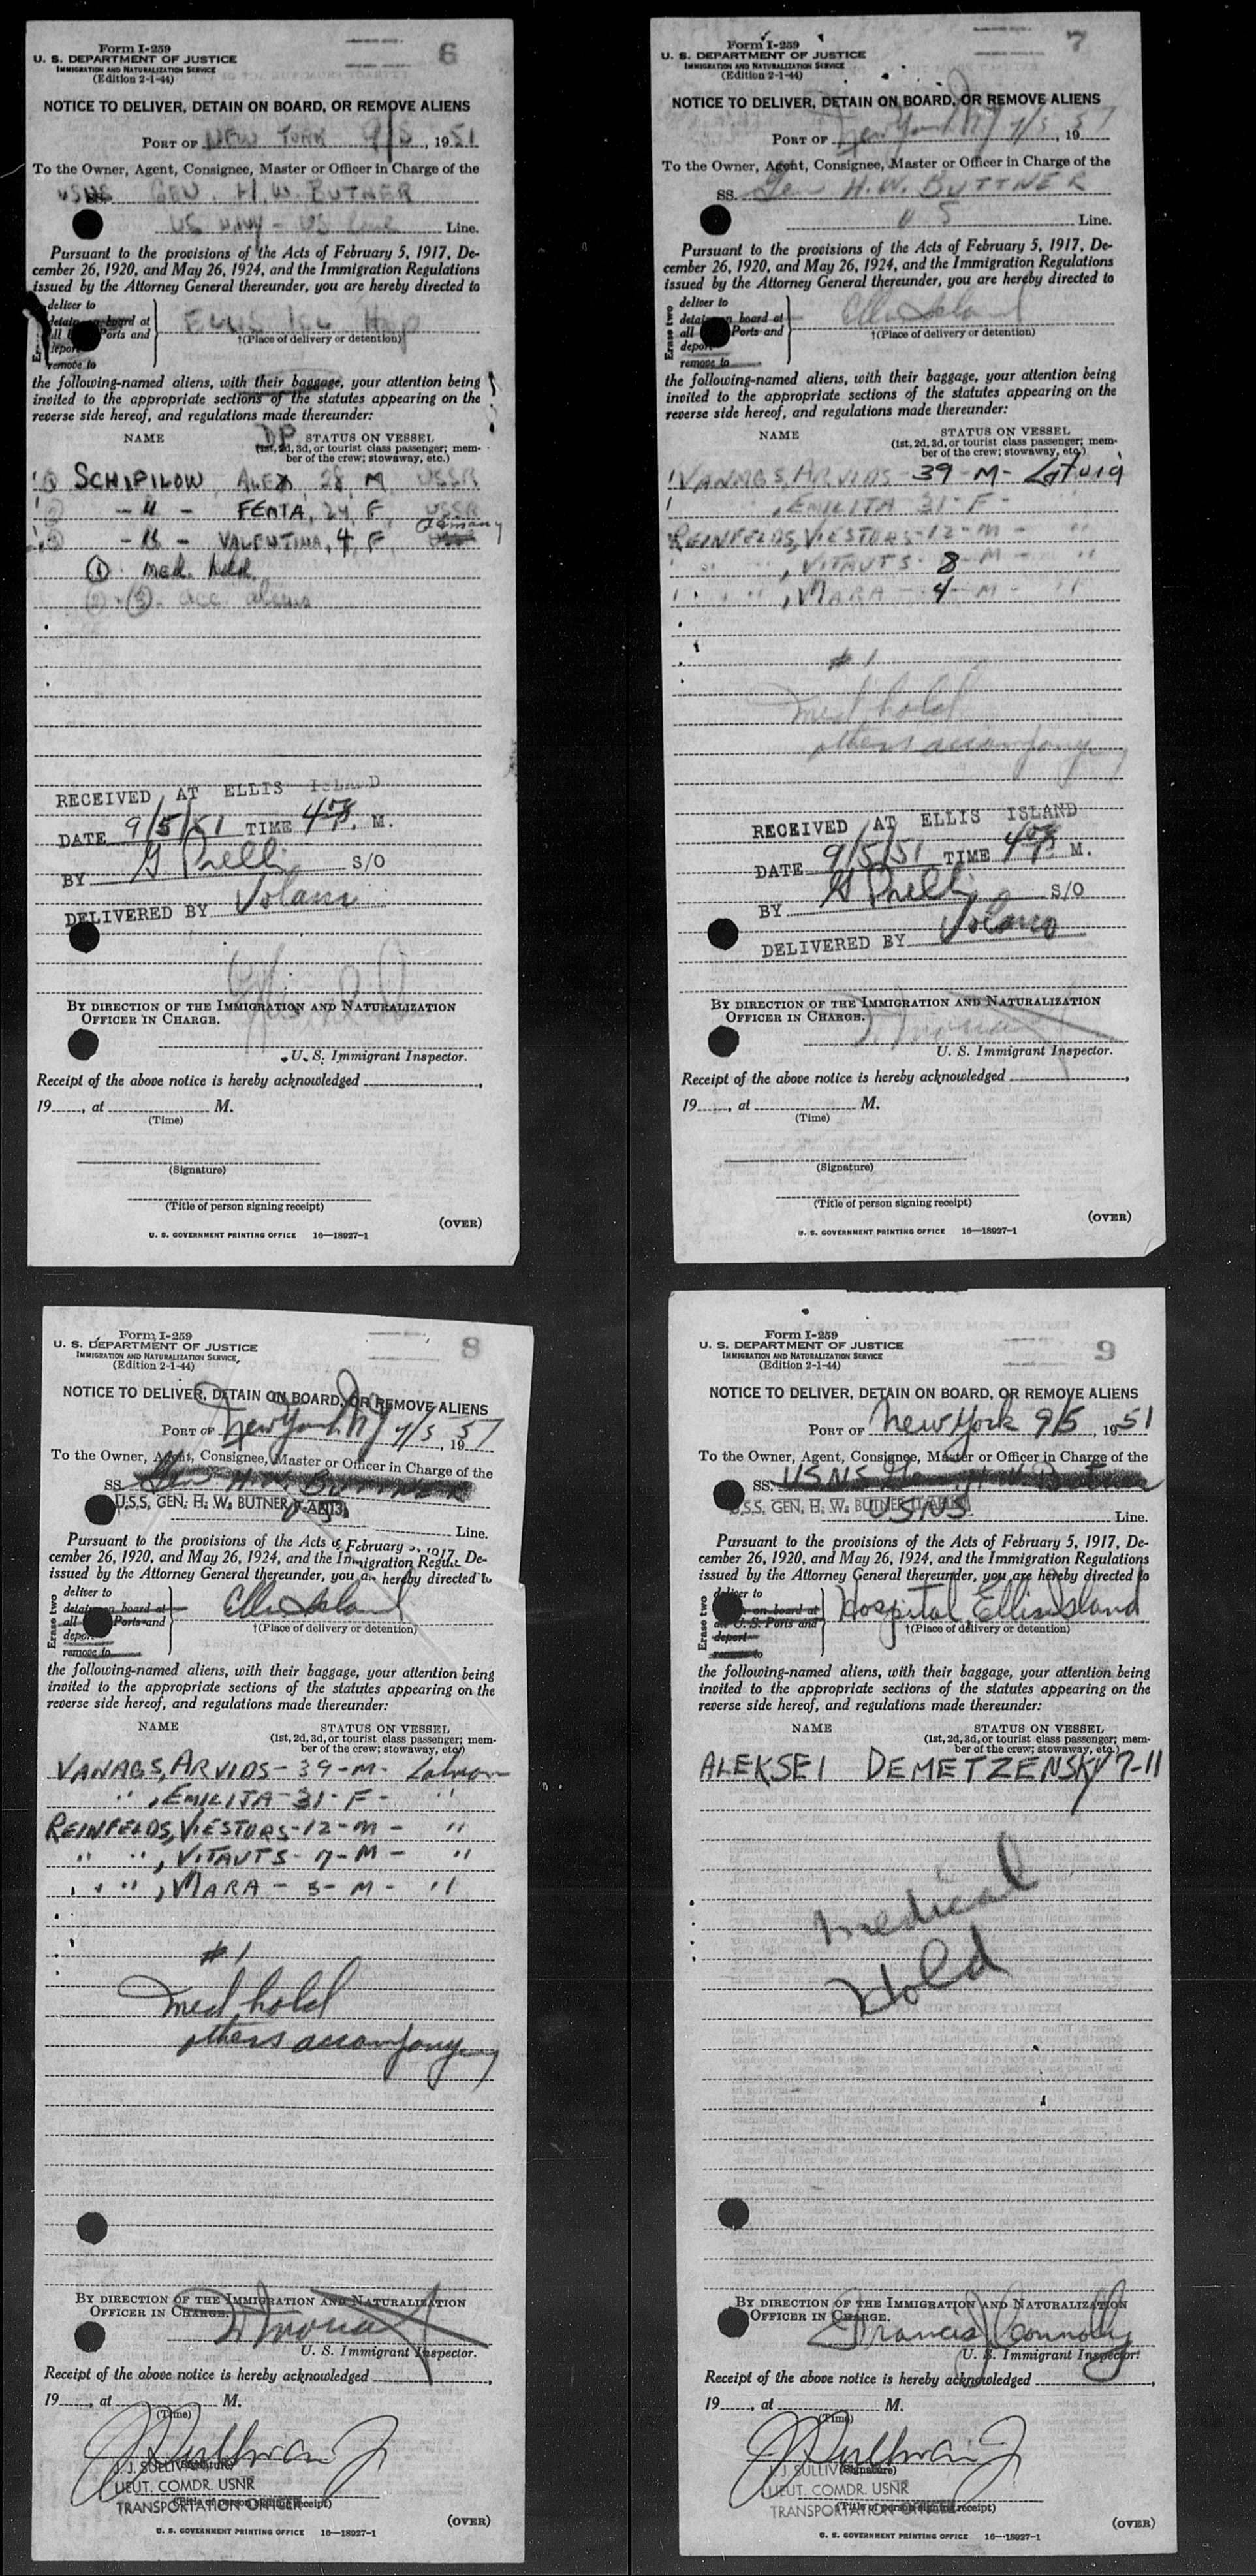 6
Form I-259
U. S. DEPARTMENT OF JUSTICE
IMMIGRATION AND NATURALIZATION SERVICE
(Edition 2-1-44)
NOTICE TO DELIVER, DETAIN ON BOARD, OR REMOVE ALIENS
PORT OF NEW YORK 9/5, 1951
To the Owner, Agent, Consignee, Master or Officer in Charge of the
USNS GEN. H. W. BUTNER
US Navy - US Line Line.
Pursuant to the provisions of the Acts of February 5, 1917, De-
cember 26, 1920, and May 26, 1924, and the Immigration Regulations
issued by the Attorney General thereunder, you are hereby directed to
deliver to
detain on board at
all Ports and
deport
remove to
ELLIS ISL Hsp
†(Place of delivery or detention)
the following-named aliens, with their baggage, your attention being
invited to the appropriate sections of the statutes appearing on the
reverse side hereof, and regulations made thereunder:
NAME DP STATUS ON VESSEL
(1st, 2d, 3d, or tourist class passenger; mem-
ber of the crew; stowaway, etc.)
① SCHIPILOW, ALEX, 28, M, USSR
② - " - FENTA, 24, F, USSR
③ - " - VALENTINA, 4, F, Germany
① med. hold
② - ③ acc. aliens
RECEIVED AT ELLIS ISLAND
DATE 9/5/51 TIME 4 P. M.
BY G. Prelli S/O
DELIVERED BY Volano
BY DIRECTION OF THE IMMIGRATION AND NATURALIZATION
OFFICER IN CHARGE.
U. S. Immigrant Inspector.
Receipt of the above notice is hereby acknowledged
19, at M.
(Time)
(Signature)
(Title of person signing receipt)
(OVER)
U. S. GOVERNMENT PRINTING OFFICE 16—18927-1
7
Form I-259
U. S. DEPARTMENT OF JUSTICE
IMMIGRATION AND NATURALIZATION SERVICE
(Edition 2-1-44)
NOTICE TO DELIVER, DETAIN ON BOARD, OR REMOVE ALIENS
PORT OF New York NY 9/5, 1951
To the Owner, Agent, Consignee, Master or Officer in Charge of the
SS. Gen H. W. BUTTNER
U S Line.
Pursuant to the provisions of the Acts of February 5, 1917, De-
cember 26, 1920, and May 26, 1924, and the Immigration Regulations
issued by the Attorney General thereunder, you are hereby directed to
Erase two
deliver to
detain on board at
all Ports and
deport
remove to
Ellis Island
†(Place of delivery or detention)
the following-named aliens, with their baggage, your attention being
invited to the appropriate sections of the statutes appearing on the
reverse side hereof, and regulations made thereunder:
NAME STATUS ON VESSEL
(1st, 2d, 3d, or tourist class passenger; mem-
ber of the crew; stowaway, etc.)
VANAGS, ARVIDS - 39 - M - Latvia
" , EMILITA 31 - F - "
REINFELDS, VIESTURS - 12 - M - "
" " , VITAUTS - 8 - M - "
" " , MARA - 4 - M - "
#1
med hold
others accompany
RECEIVED AT ELLIS ISLAND
DATE 9/5/51 TIME 4 P. M.
BY G Prelli S/O
DELIVERED BY Volano
BY DIRECTION OF THE IMMIGRATION AND NATURALIZATION
OFFICER IN CHARGE.
U. S. Immigrant Inspector.
Receipt of the above notice is hereby acknowledged
19, at M.
(Time)
(Signature)
(Title of person signing receipt)
(OVER)
U. S. GOVERNMENT PRINTING OFFICE 16—18927-1
8
Form I-259
U. S. DEPARTMENT OF JUSTICE
IMMIGRATION AND NATURALIZATION SERVICE
(Edition 2-1-44)
NOTICE TO DELIVER, DETAIN ON BOARD, OR REMOVE ALIENS
PORT OF New York NY 9/5, 1951
To the Owner, Agent, Consignee, Master or Officer in Charge of the
SS. Gen H. W. BUTTNER
U.S.S. GEN. H. W. BUTNER
U S Line.
Pursuant to the provisions of the Acts of February 5, 1917, De-
cember 26, 1920, and May 26, 1924, and the Immigration Regula
issued by the Attorney General thereunder, you are hereby directed to
Erase two
deliver to
detain on board at
all Ports and
deport
remove to
Ellis Island
†(Place of delivery or detention)
the following-named aliens, with their baggage, your attention being
invited to the appropriate sections of the statutes appearing on the
reverse side hereof, and regulations made thereunder:
NAME STATUS ON VESSEL
(1st, 2d, 3d, or tourist class passenger; mem-
ber of the crew; stowaway, etc.)
VANAGS, ARVIDS - 39 - M - Latvian
" , EMILITA - 31 - F - "
REINFELDS, VIESTURS - 12 - M - "
" " , VITAUTS - 7 - M - "
" " , MARA - 3 - M - "
#1
med hold
others accompany
BY DIRECTION OF THE IMMIGRATION AND NATURALIZATION
OFFICER IN CHARGE.
U. S. Immigrant Inspector.
Receipt of the above notice is hereby acknowledged
19, at M.
(Time)
JJ Sullivan Jr
J. J. SULLIVAN (Signature)
LIEUT. COMDR. USNR
TRANSPORTATION OFFICER (Title of person signing receipt)
(OVER)
U. S. GOVERNMENT PRINTING OFFICE 16—18927-1
9
Form I-259
U. S. DEPARTMENT OF JUSTICE
IMMIGRATION AND NATURALIZATION SERVICE
(Edition 2-1-44)
NOTICE TO DELIVER, DETAIN ON BOARD, OR REMOVE ALIENS
PORT OF New York 9/5 1951
To the Owner, Agent, Consignee, Master or Officer in Charge of the
SS. USNS Gen H W Butner
U.S.S. GEN. H. W. BUTNER
USNS Line.
Pursuant to the provisions of the Acts of February 5, 1917, De-
cember 26, 1920, and May 26, 1924, and the Immigration Regulations
issued by the Attorney General thereunder, you are hereby directed to
Erase two
deliver to
on board at
all U. S. Ports and
deport
remove to
Hospital, Ellis Island
†(Place of delivery or detention)
the following-named aliens, with their baggage, your attention being
invited to the appropriate sections of the statutes appearing on the
reverse side hereof, and regulations made thereunder:
NAME STATUS ON VESSEL
(1st, 2d, 3d, or tourist class passenger; mem-
ber of the crew; stowaway, etc.)
ALEKSEI DEMETZENSKY 7-11
Medical
Hold
BY DIRECTION OF THE IMMIGRATION AND NATURALIZATION
OFFICER IN CHARGE.
Francis J Connolly
U. S. Immigrant Inspector.
Receipt of the above notice is hereby acknowledged
19, at M.
(Time)
JJ Sullivan Jr
J. J. SULLIV (Signature)
LIEUT. COMDR. USNR
TRANSPORTAT (Title of person signing receipt)
(OVER)
U. S. GOVERNMENT PRINTING OFFICE 16—18927-1